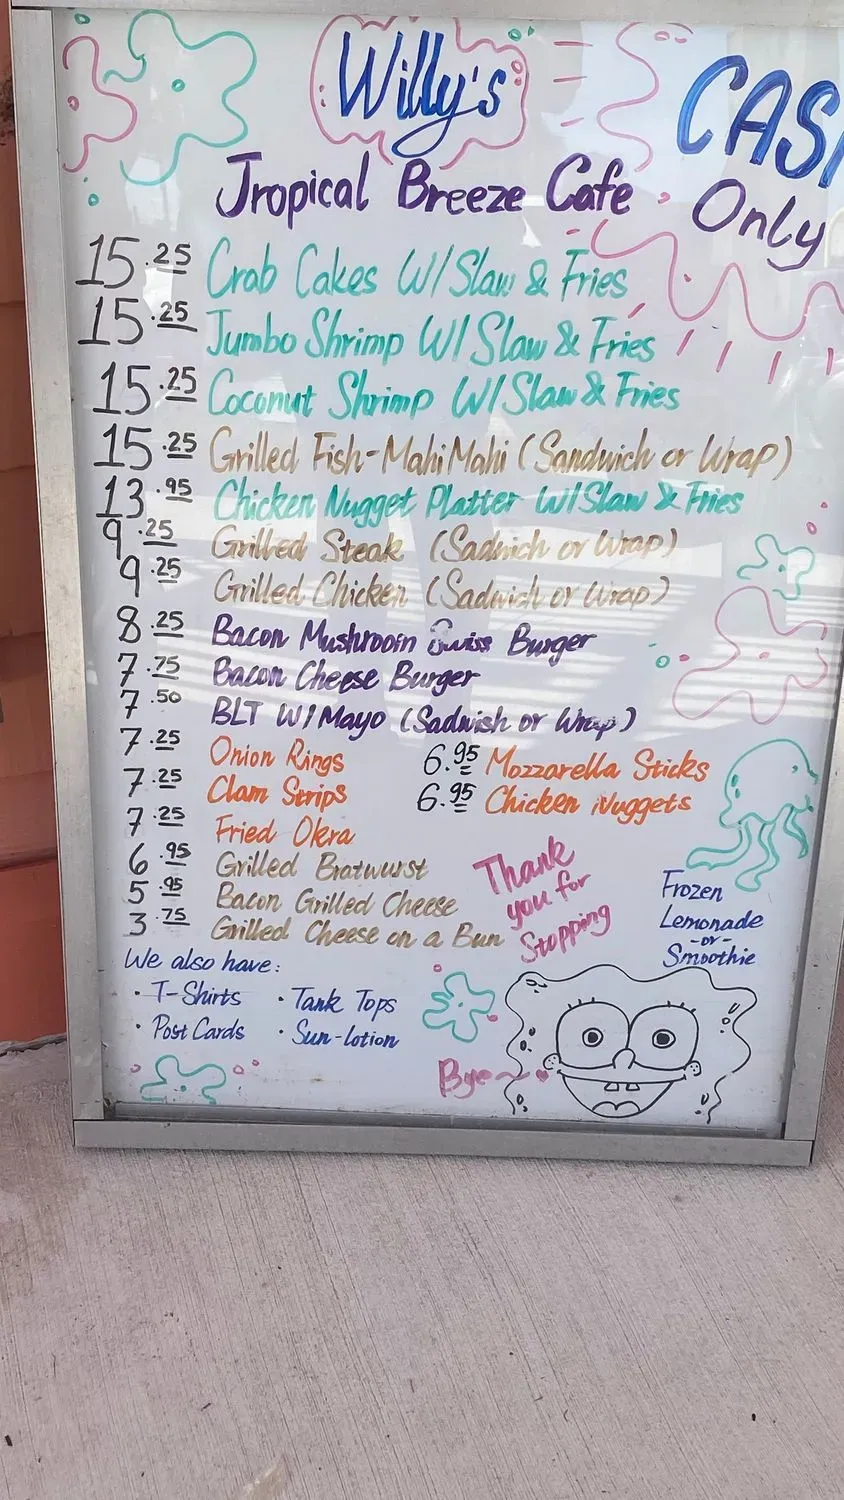 Willy's
CAS
Only
Tropical Breeze Cafe
15.25 Crab Cakes W/Slaw & Fries
15.25 Jumbo Shrimp W/Slaw & Fries
15.25 Coconut Shrimp W/Slaw & Fries
15.25 Grilled Fish-Mahi Mahi (Sandwich or Wrap)
13.95 Chicken Nugget Platter W/Slaw & Fries
9.25 Grilled Steak (Sadwich or Wrap)
9.25 Grilled Chicken (Sadwich or Wrap)
8.25 Bacon Mushroom Swiss Burger
7.75 Bacon Cheese Burger
7.50 BLT W/Mayo (Sadwish or Wrap)
7.25 Onion Rings 6.95 Mozzarella Sticks
7.25 Clam Strips 6.95 Chicken Nuggets
7.25 Fried Okra
6.95 Grilled Bratwurst
5.95 Bacon Grilled Cheese
3.75 Grilled Cheese on a Bun
Thank
you for
Stopping
Frozen
Lemonade
-or-
Smoothie
We also have:
· T-Shirts · Tank Tops
· Post Cards · Sun-lotion
Bye~